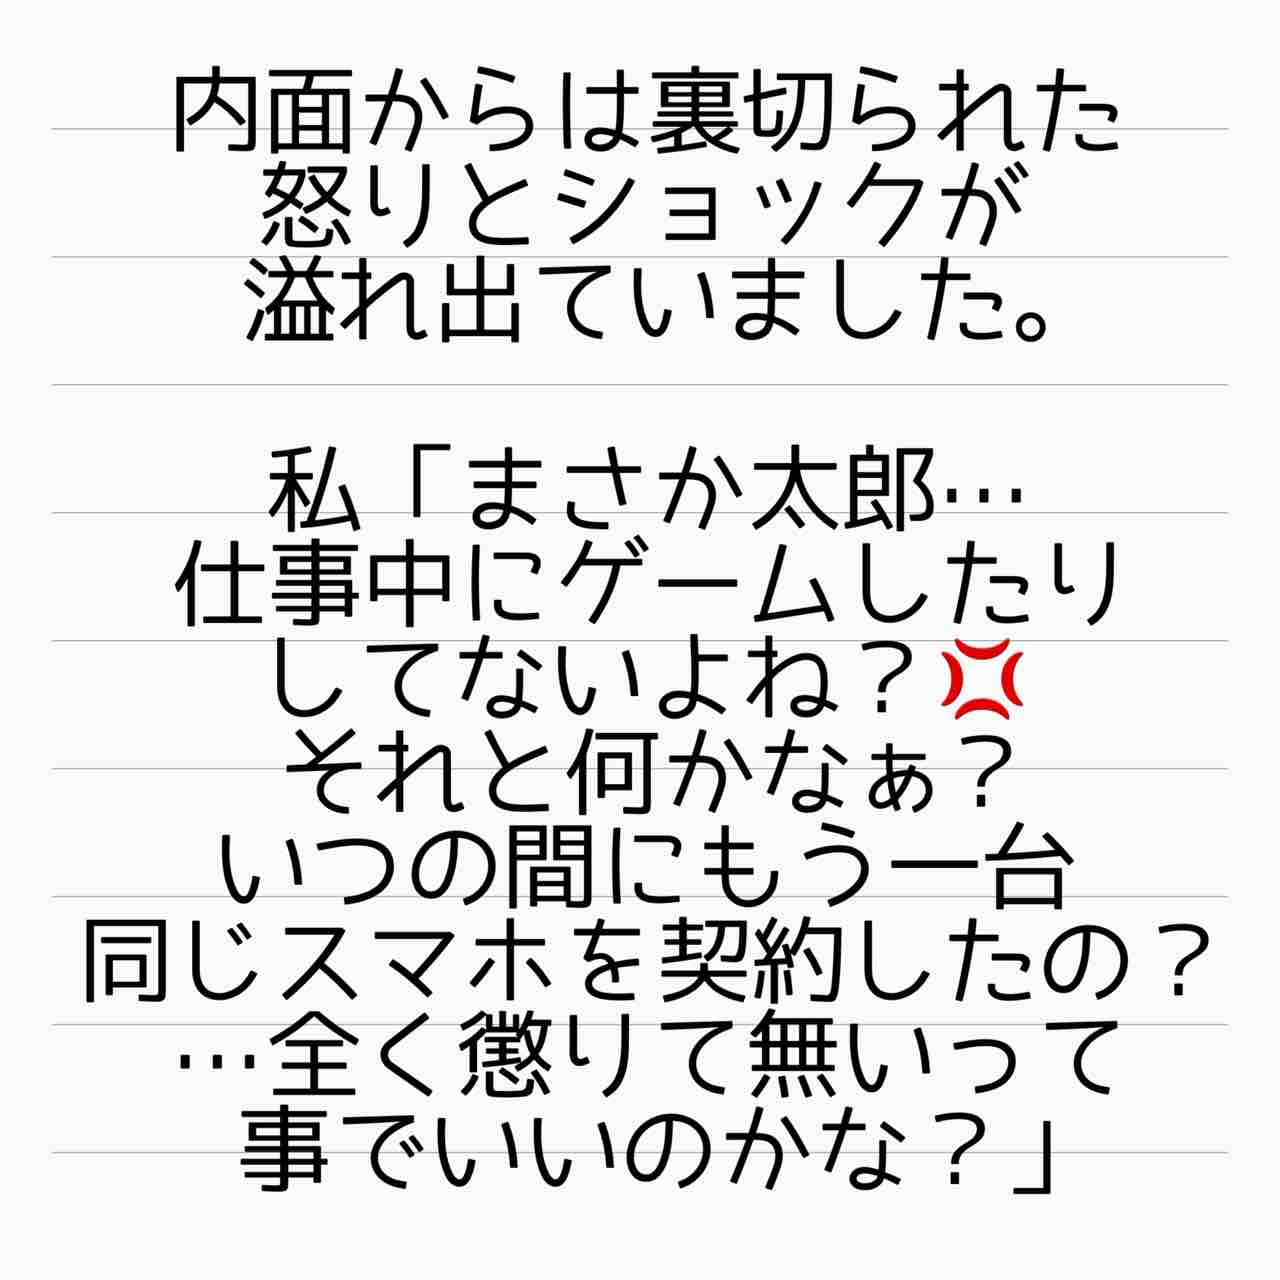 内面からは裏切られた
怒りとショックが
溢れ出ていました。
私「まさか太郎…
仕事中にゲームしたり
してないよね？💢
それと何かなぁ？
いつの間にもう一台
同じスマホを契約したの？
…全く懲りて無いって
事でいいのかな？」